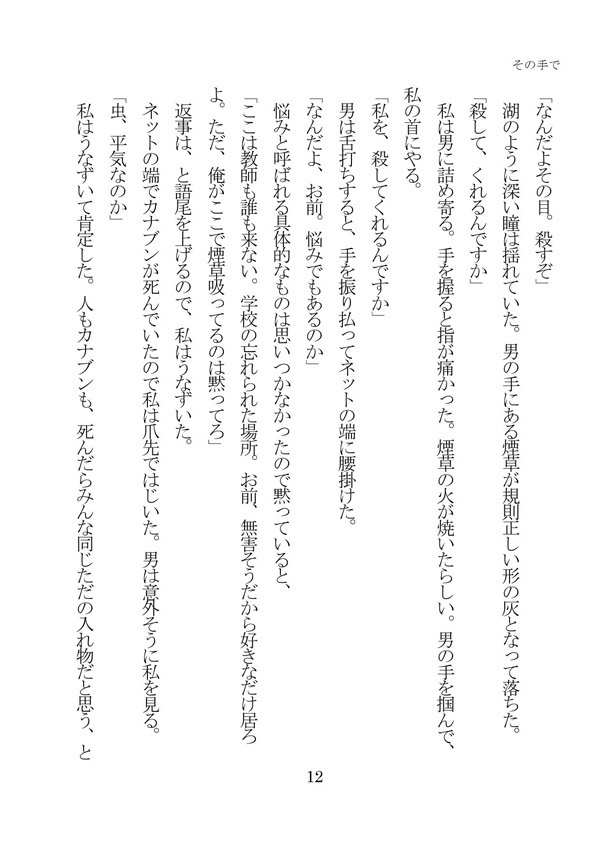 その手で
「なんだよその目。殺すぞ」
湖のように深い瞳は揺れていた。男の手にある煙草が規則正しい形の灰となって落ちた。
「殺して、くれるんですか」
私は男に詰め寄る。手を握ると指が痛かった。煙草の火が焼いたらしい。男の手を掴んで、
私の首にやる。
「私を、殺してくれるんですか」
男は舌打ちすると、手を振り払ってネットの端に腰掛けた。
「なんだよ、お前。悩みでもあるのか」
悩みと呼ばれる具体的なものは思いつかなかったので黙っていると、
「ここは教師も誰も来ない。学校の忘れられた場所。お前、無害そうだから好きなだけ居ろ
よ。ただ、俺がここで煙草吸ってるのは黙ってろ」
返事は、と語尾を上げるので、私はうなずいた。
ネットの端でカナブンが死んでいたので私は爪先ではじいた。男は意外そうに私を見る。
「虫、平気なのか」
私はうなずいて肯定した。人もカナブンも、死んだらみんな同じただの入れ物だと思う、と
12